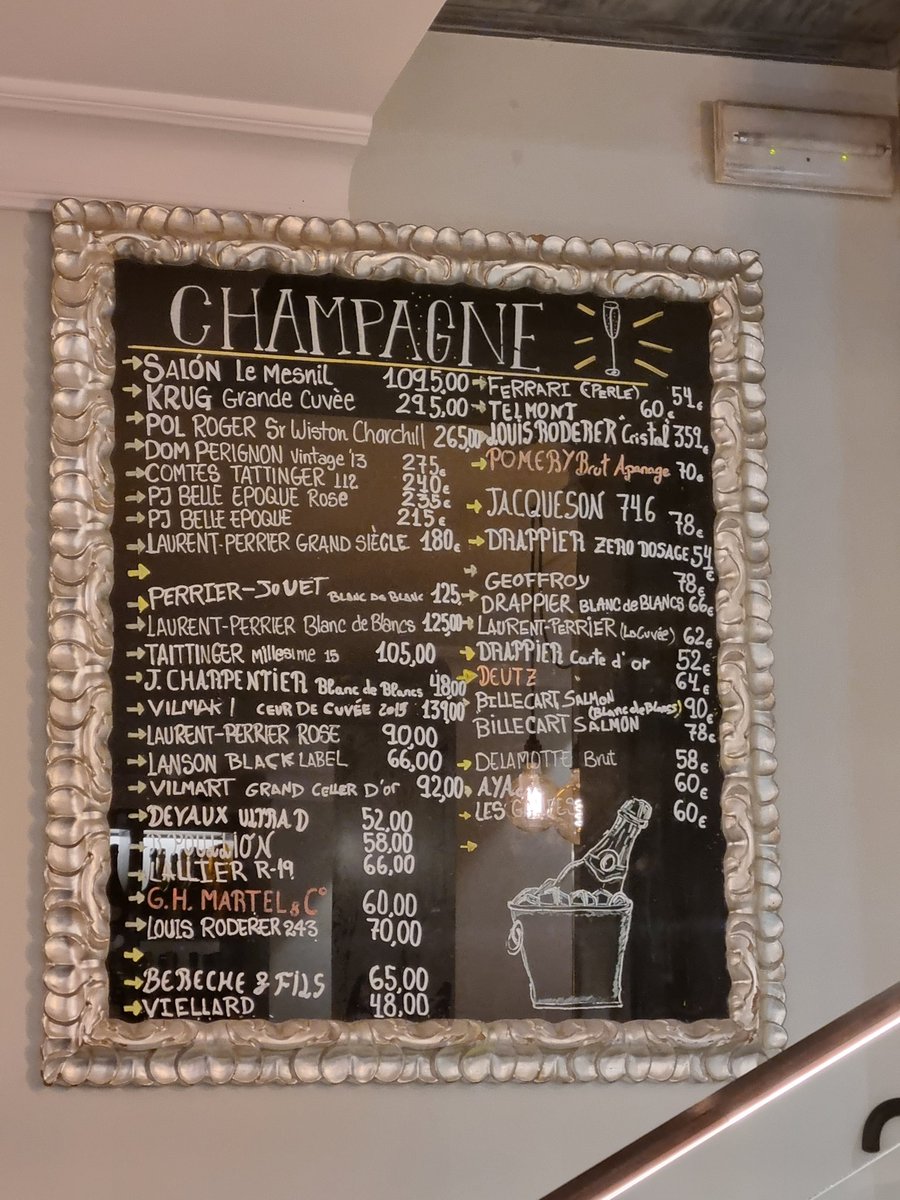 CHAMPAGNE
SALÓN Le Mesnil 1095,00
KRUG Grande Cuvèe 295,00
POL ROGER Sr Wiston Chorchill 265,00
DOM PERIGNON Vintage '13 275€
COMTES TATTINGER 112 240€
PJ BELLE EPOQUE Rose 235€
PJ BELLE EPOQUE 215€
LAURENT-PERRIER GRAND SIÈCLE 180€
PERRIER-JOUET BLANC DE BLANC 125
LAURENT-PERRIER Blanc de Blancs 125,00
TAITTINGER Millesime 15 105,00
J. CHARPENTIER Blanc de Blancs 48,00
VILMAK! CEUR DE CUVÉE 2015 139,00
LAURENT-PERRIER ROSE 90,00
LANSON BLACK LABEL 66,00
VILMART GRAND Celler D'or 92,00
DEVAUX ULTRA D 52,00
58,00
LALLIER R-19 66,00
G.H. MARTEL & C° 60,00
LOUIS RODERER 243 70,00
BERECHE & FILS 65,00
VIELLARD 48,00
FERRARI (PERLE) 54€
TELMONT 60€
LOUIS RODERER Cristal 359€
POMERY Brut Apanage 70€
JACQUESON 746 78€
DRAPPIER ZERO DOSAGE 54€
GEOFFROY 78€
DRAPPIER BLANC de BLANCS 66€
LAURENT-PERRIER (La Cuvée) 62€
DRAPPIER Carte d'or 52€
DEUTZ 64€
BILLECART SALMON (Blanc de Blancs) 90€
BILLECART SALMON 78€
DELAMOTTE Brut 58€
AYA 60€
LES 60€